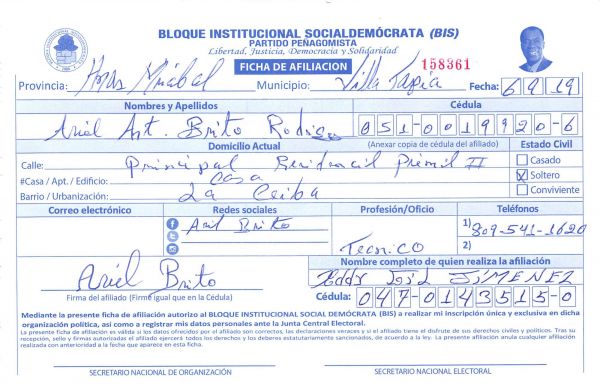 BLOQUE INSTITUCIONAL SOCIALDEMÓCRATA (BIS)
PARTIDO PEÑAGOMISTA
Libertad, Justicia, Democracia y Solidaridad
FICHA DE AFILIACION
158361
Provincia: Hnas Mirabal Municipio: Villa Tapia Fecha: 6 9 19
Nombres y Apellidos Cédula
Ariel Ant. Brito Rodrig 051-0019920-6
Domicilio Actual (Anexar copia de cédula del afiliado) Estado Civil
Calle: Principal Residencial II Casado
#Casa / Apt. / Edificio: Casa X Soltero
Barrio / Urbanización: La Ceiba Conviviente
Correo electrónico Redes sociales Profesión/Oficio Teléfonos
Ariel Brito 1) 809-541-1620
Tecnico 2)
Nombre completo de quien realiza la afiliación
Ariel Brito Eddy José JIMENEZ
Firma del afiliado (Firme igual que en la Cédula) Cédula: 047-0143515-0
Mediante la presente ficha de afiliación autorizo al BLOQUE INSTITUCIONAL SOCIAL DEMÓCRATA (BIS) a realizar mi inscripción única y exclusiva en dicha
organización política, así como a registrar mis datos personales ante la Junta Central Electoral.
La presente ficha de afiliación es válida si los datos ofrecidos por el afiliado son correctos, las declaraciones veraces y si el afiliado tiene el disfrute de sus derechos civiles y políticos. Tras su
recepción, sello y firmas autorizadas el afiliado ejercerá todos los derechos y los deberes estatutariamente sancionados, de acuerdo a la ley. La presente afiliación anula cualquier afiliación
realizada con anterioridad a la fecha que aparece en esta ficha.
SECRETARIO NACIONAL DE ORGANIZACIÓN SECRETARIO NACIONAL ELECTORAL